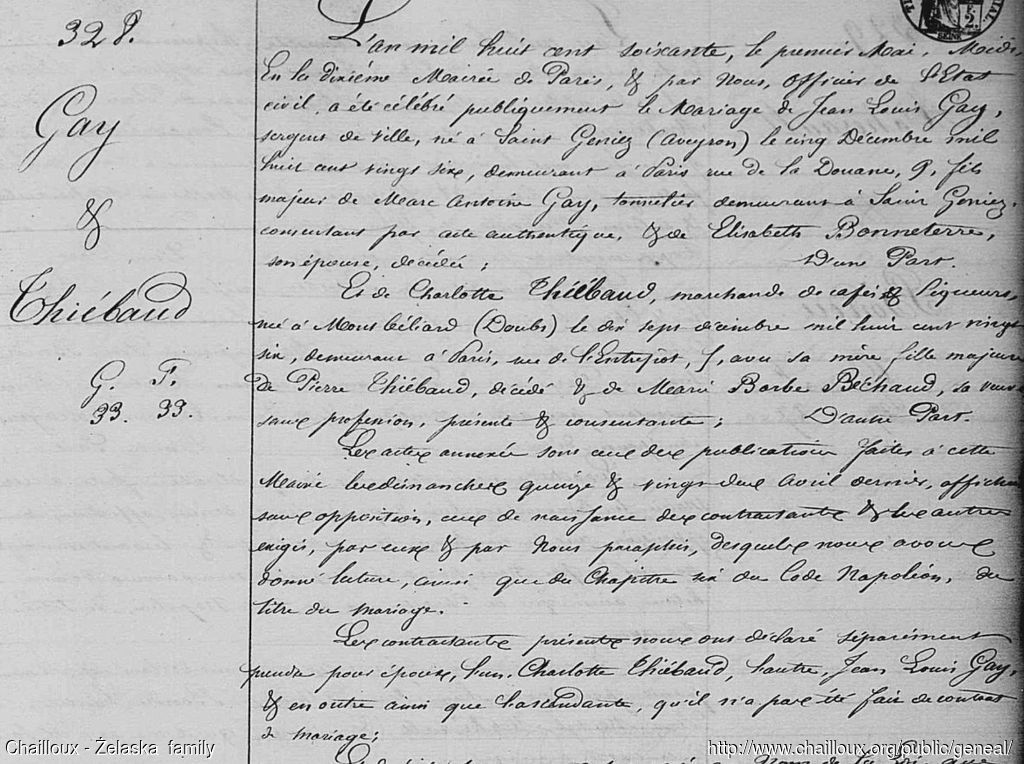 328.
Gay
&
Thiébaud
G. F.
33. 33.
L'an mil huit cent soixante, le premier Mai, Midi,
En la dixième Mairie de Paris, & par Nous, Officier de l'Etat
civil, a été célébré publiquement le Mariage de Jean Louis Gay,
sergent de ville, né à Saint Geniez (Aveyron) le cinq Décembre mil
huit cent vingt six, demeurant à Paris rue de la Douane, 9, fils
majeur de Marc Antoine Gay, tonnelier demeurant à Saint Geniez,
consentant par acte authentique, & de Elisabeth Bonneterre,
son épouse, décédée; D'une Part.
Et de Charlotte Thiébaud, marchande de cafés & liqueurs,
née à Montbéliard (Doubs) le dix sept décembre mil huit cent vingt
six, demeurant à Paris, rue de l'Entrepôt, avec sa mère fille majeure
De Pierre Thiébaud, décédé & de Marie Barbe Bechaud, sa veuve
sans profession, présente & consentante; D'autre Part.
Les actes annexés sont ceux des publications faites à cette
Mairie les dimanches quinze & vingt deux Avril dernier, affichées
sans opposition, ceux de naissance des contractants & les autres
exigés, par eux & par Nous paraphés, desquels nous avons
donné lecture, ainsi que du Chapitre six du Code Napoléon, du
titre du mariage.
Les contractants présents nous ont déclaré séparément
prendre pour époux, l'un, Charlotte Thiébaud, l'autre, Jean Louis Gay,
& en outre ainsi que l'ascendante, qu'il n'a pas été fait de contrat
de mariage;
Chailloux - Żelaska family
http://www.chailloux.org/public/geneal/